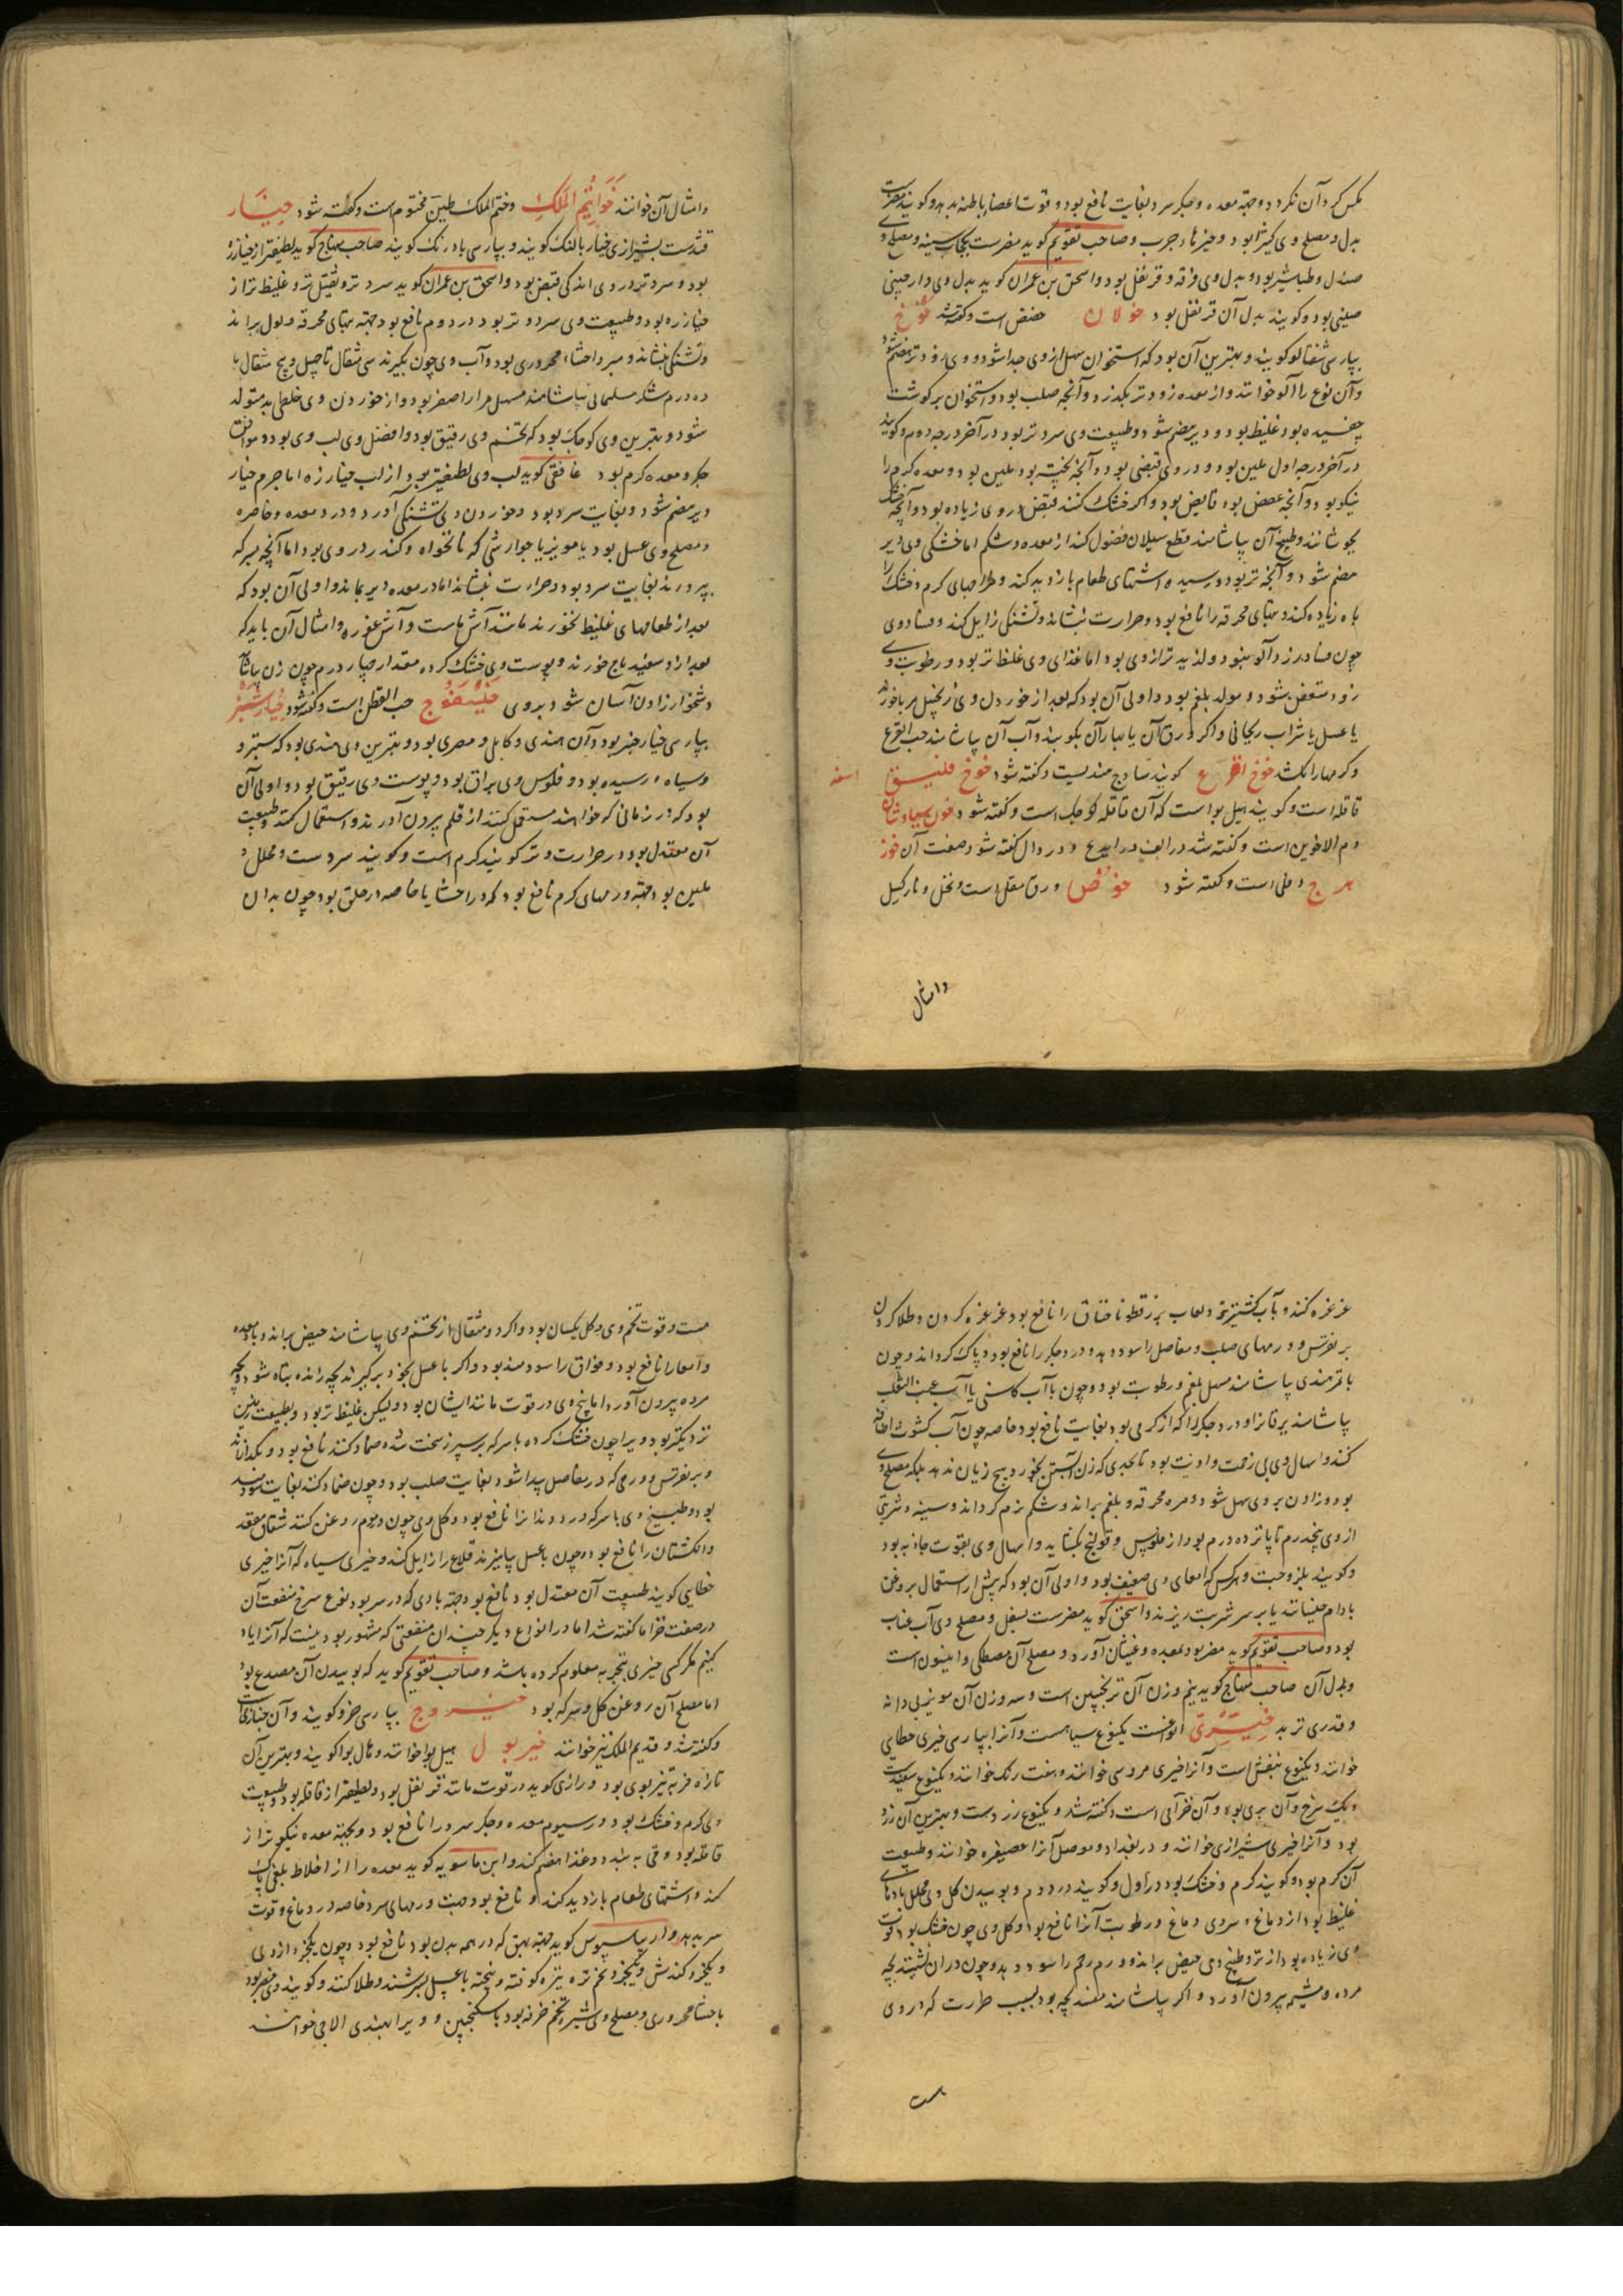 مکس کرد آن نکردد وجهة معده و جکر سرد بغایت نافع بود و قوت اعضاء باطنه بدهد و کویند مضرست
بدل و مصلح وی کتیرا بود و صاحب تقویم کوید مضرست بحجاب سینه و مصلح وی
صندل و طباشیر بود و بدل وی قرفه و قرنفل بود و اسحق بن عمران کوید بدل وی دارچینی
صینی بود و کویند بدل آن قرنفل بود خولان حضض است و کفته شد خوخ
بپارسی شفتالو کویند و بهترین آن بود که استخوان سهل از وی جدا شود و وی زودتر هضم شود
و آن نوع را آلو خوانند و از معده زودتر بکذرد و آنچه صلب بود و استخوان بر کوشت
چفسیده بود غلیظ بود و دیر هضم شود و طبیعت وی سرد تر بود در آخر درجه دوم و کویند
در آخر درجه اول ملین بود و در وی قبضی بود و آنچه پخته بود ملین بود و معده کرم را
نیکو بود و آنچه عفص بود قابض بود و اکر خشک کنند قبض در وی زیاده بود و آنچه خشک
بجوشانند و طبیخ آن بیاشامند قطع سیلان فضول کند از معده و شکم اما خشکی وی دیر
هضم شود و آنچه تر بود و رسیده اشتهای طعام بازدید کند و مزاجهای کرم و خشک را
باه زیاده کند و تبهای محرقه را نافع بود و حرارت بنشاند و تشنکی زایل کند و فساد وی
چون فساد زردآلو نبود و لذیذتر از وی بود اما غذای وی غلیظتر بود و رطوبت وی
زود متعفن شود و مولد بلغم بود و اولی آن بود که بعد از خوردن وی زنجبیل مربا خورند
یا عسل یا شراب ریحانی و اکر ورق آن یا بهار آن بکوبند و آب آن بیاشامند حب القرع
و کرمها را بکشد خوخ اقرع کویند ساذج هندیست و کفته شود خوخ فلیسق اسفه
قاقله است و کویند هیل بوا است که آن قاقله کوچک است و کفته شود خون سیاوشان
دم الاخوین است و کفته شد در الف در ایدع و در دال کفته شود صفت آن خوز
هرج دفلی است و کفته شود خوص ورق مقل است و نخل و نارکیل
وامثال
وامثال آن خوانند خواتیم الملک و ختم الملک طین مختوم است و کفته شود خیار
قثدست بشیرازی خیار بالنک کویند و بپارسی بادرنک کویند صاحب منهاج کوید لطیفتر از خیارزه
بود و سردتر و در وی اندکی قبض بود و اسحق بن عمران کوید سردتر و ثقیل‌تر و غلیظتر از
خیارزه بود و طبیعت وی سرد و تر بود در دوم نافع بود جهة تبهای محرقه و بول براند
و تشنکی بنشاند و مبرد احشاء محروری بود و آب وی چون بکیرند سی مثقال تا چهل و پنج مثقال با
ده درم شکر سلیمانی بیاشامند مسهل مرار اصفر بود و از خوردن وی خلطی بد متولد
شود و بهترین وی کوچک بود که تخم وی رقیق بود و افضل وی لب وی بود و موافق
جکر و معده کرم بود غافقی کوید لب وی لطیفتر بود از لب خیارزه اما جرم خیار
دیر هضم شود و بغایت سرد بود و خوردن وی تشنکی آورد و درد معده و خاصره
و مصلح وی عسل بود یا مویز یا جوارشی که نانخواه و کندر در وی بود اما آنچه بسرکه
پرورند بغایت سرد بود و حرارت بنشاند اما در معده دیر بماند و اولی آن بود که
بعد از طعامهای غلیظ نخورند مانند آش ماست و آش غوره و امثال آن باید که
بعد از اسفیدباج خورند و پوست وی خشک کرده مقدار چهار درم چون زن بیاشامد
دشخوار زادن آسان شود بروی خیسفوج حب القطن است و کفته شود خیارشنبر
بپارسی خیارچنبر بود و آن هندی و کابلی و مصری بود و بهترین وی هندی بود که سبتر و
و سیاه و رسیده بود و فلوس وی براق بود و پوست وی رقیق بود و اولی آن
بود که در زمانی که خواهند مستعمل کنند از قلم بیرون آورند و استعمال کنند و طبیعت
آن معتدل بود در حرارت و تر کویند کرم است و کویند سردست و محلل و
ملین بود جهة ورمهای کرم نافع بود که در احشا یا خاصه در حلق بود چون بدان
غرغره کنند و بآب کشنیز تر و لعاب بزرقطونا خناق را نافع بود غرغره کردن و طلا کردن
بر نقرس و ورمهای صلب و مفاصل را سود دهد و درد جکر را نافع بود و پاک کرداند و چون
با تمرهندی بیاشامند مسهل بلغم و رطوبت بود و چون با آب کاسنی یا آب عنب الثعلب
بیاشامند یرقان را و درد جکر را که از کرمی بود بغایت نافع بود خاصه چون آب کشوث اضافه
کنند و اسهال وی بی زحمت و اذیت بود تا بحدی که زن آبستن بخورد هیچ زیان ندهد بلکه مصلح وی
بود و زادن بروی سهل شود و مره محرقه و بلغم براند و شکم نرم کرداند و سینه و شربتی
از وی پنجدرم تا پانزده درم بود از فلوس و قولنج بکشاید و اسهال وی بقوت جاذبه بود
و کویند بلزوجت و هرکس که امعای وی ضعیف بود و اولی آن بود که پیش از استعمال بروغن
بادام خیسانند یا بر سر شربت ریزند و اسحق کوید مضرست بسفل و مصلح وی آب عناب
بود و صاحب تقویم کوید مضر بود بمعده و غثیان آورد و مصلح آن مصطکی و انیسون است
و بدل آن صاحب منهاج کوید نیم وزن آن ترنجبین است و سه وزن آن مویز بی دانه
و قدری تربد خیری انواعست یکنوع سیاهست و آنرا بپارسی خیری خطایی
خوانند و یکنوع بنفش است و آنرا خیری مردسی خوانند و هفت رنک خوانند و یکنوع سفیدست
و یک سرخ و آن بری بود و آن خزامی است و کفته شد و یکنوع زردست و بهترین آن زرد
بود و آنرا خیری شیرازی خوانند و در بغداد و موصل آنرا عصیفره خوانند و طبیعت
آن کرم بود و کویند کرم و خشک بود در اول و کویند در دوم و بوییدن کل وی محلل بادهای
غلیظ بود از دماغ و سردی دماغ و رطوبت آنرا نافع بود و کل وی چون خشک بود قوت
وی زیاده بود از تر و طبیخ وی حیض براند و ورم رحم را سود دهد و چون در آن نشینند بچه
مرده و مشیمه بیرون آورد و اکر بیاشامند مفسد بچه بود بسبب حرارت که در وی
هست
هست و قوت تخم وی و کل یکسان بود و اکر دو مثقال از تخم وی بیاشامند حیض براند و باد معده
و امعا را نافع بود و فواق را سودمند بود و اکر با عسل بخود برکیرند بچه زنده تباه شود و بچه
مرده بیرون آورد اما بیخ وی در قوت مانند ایشان بود ولیکن غلیظتر بود و بطبیعت زمین
نزدیکتر بود و ویرا چون خشک کرده با سرکه بر سپرز سخت شده ضماد کنند نافع بود و بکدازاند
و بر نقرس و ورمی که در مفاصل پیدا شود بغایت صلب بود و چون ضماد کنند بغایت سودمند
بود و طبیخ وی با سرکه درد دندانرا نافع بود و کل وی چون و موم روغن کنند شقاق مقعد
و انکشتان را نافع بود و چون با عسل بیامیزند قلاع را زایل کند و خیری سیاه که آنرا خیری
خطایی کویند طبیعت آن معتدل بود نافع بود جهة بادی که در سر بود و نوع سرخ منفعت آن
در صفت خزاما کفته شد اما در انواع دیکر چندان منفعتی که مشهور بود نیست که آنرا یاد
کنیم مکر کسی چیزی بتجربه معلوم کرده باشد و صاحب تقویم کوید که بوییدن آن مصدع بود
اما مصلح آن روغن کل و سرکه بود خیروج بپارسی خرو کویند و آن خبازیست
و کفته شد و قدیم الملک نیز خوانند خیربول هیل بوا خوانند و هال بوا کویند و بهترین آن
تازه فربه تیزبوی بود و رازی کوید در قوت مانند قرنفل بود و لطیفتر از قاقله بود و طبیعت
وی کرم و خشک بود در سیوم معده و جکر سرد را نافع بود و بجهة معده نیکوتر از
قاقله بود و قی ببندد و غذا هضم کند و ابن ماسویه کوید معده را از اخلاط بلغمی پاک
کند و اشتهای طعام بازدید کند و نافع بود جهت ورمهای سرد خاصه در دماغ و قوت
سر بدهد و ارسیوس کوید جهة بهق که در همه بدن بود نافع بود و چون یکجزو از وی
و یکجزو کندش و یکجزو تخم تره تیزه کوفته و بیخته با عسل بسرشند و طلا کنند و کویند وی مضر بود
باحشا محروری و مصلح وی شیر تخم خرفه بود با سکنجبین و ویرا بهندی الاچی خوانند